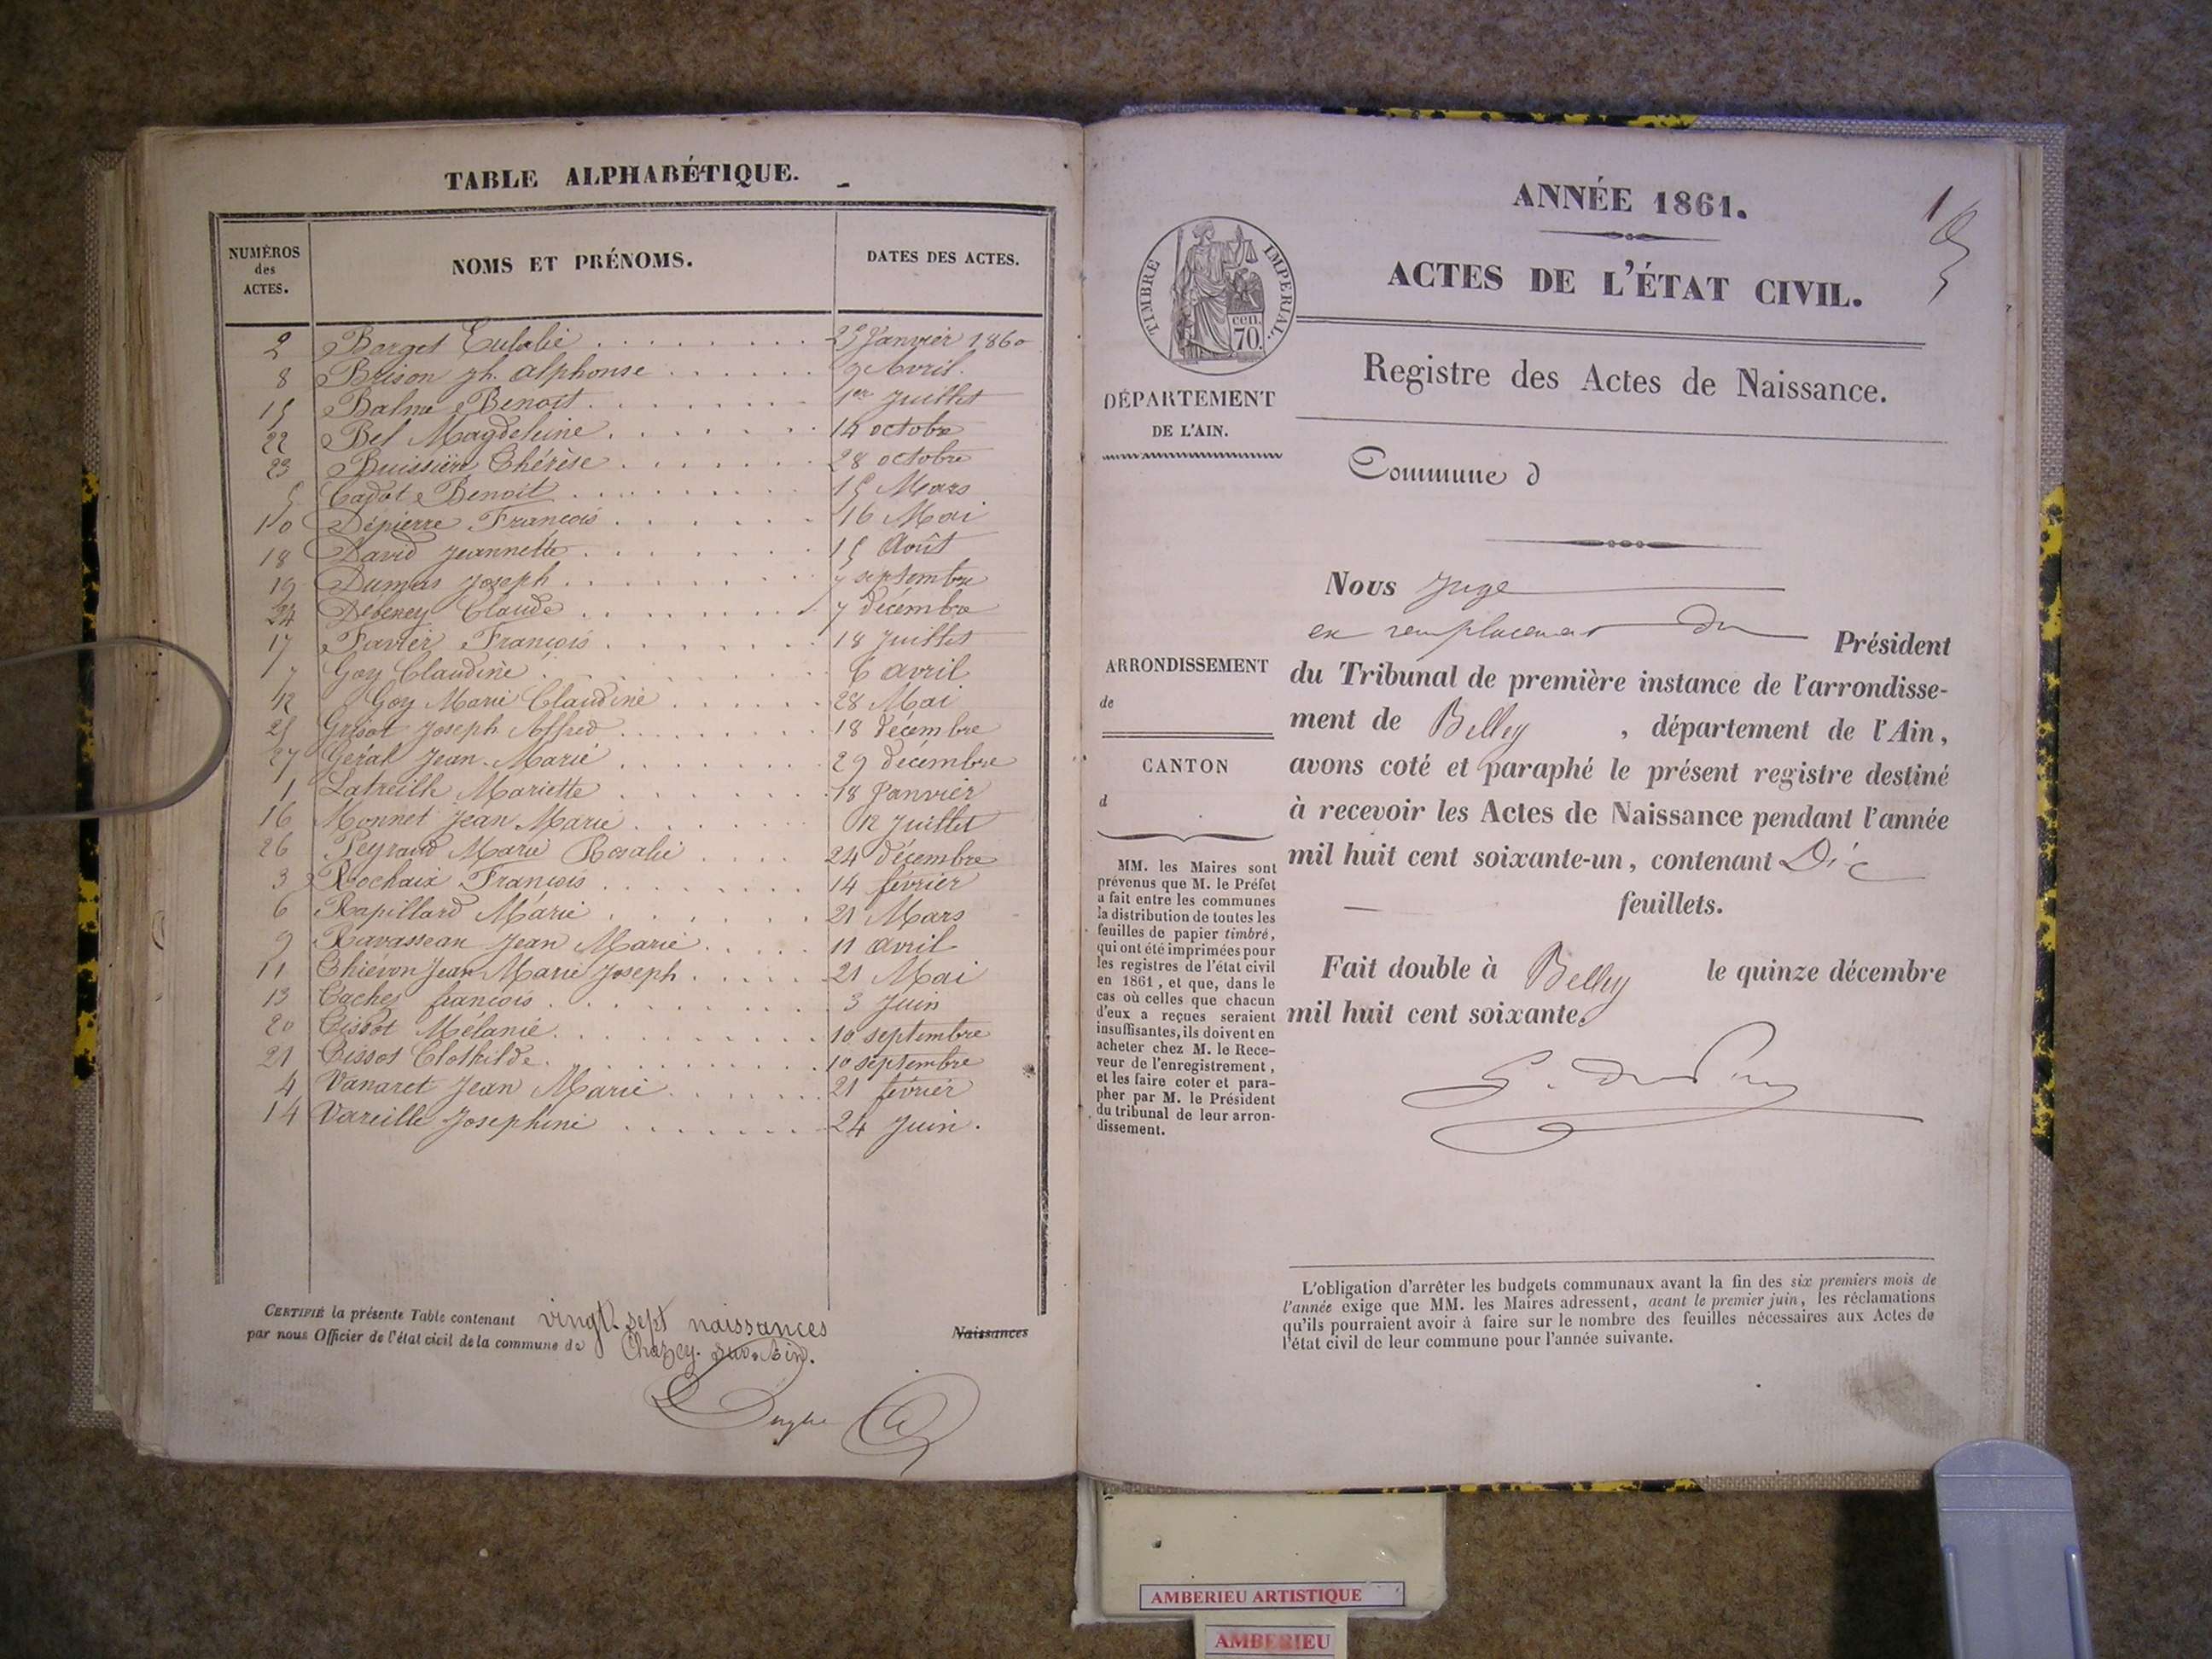 TABLE ALPHABÉTIQUE.
NUMÉROS
des
ACTES.
NOMS ET PRÉNOMS.
DATES DES ACTES.
2 Borget Eulalie 25 Janvier 1860
8 Brison Jh. Alphonse 9 Avril.
15 Balme Benoit 1er Juillet
22 Bel Magdeleine 14 octobre
23 Buissière Thérèse 28 octobre
5 Cadot Benoit 15 Mars
10 Dépierre François 16 Mai
18 David Jeannette 15 Août
19 Dumas Joseph septembre
24 Debeney Claude 7 décembre
17 Favier François 18 Juillet
7 Goy Claudine 6 avril
12 Goy Marie Claudine 28 Mai
25 Grisot Joseph Alfred 18 décembre
27 Jean-Marie 29 décembre
1 Latreille Mariette 18 Janvier
16 Monnet Jean Marie 12 Juillet
26 Peyraud Marie Rosalie 24 décembre
3 Rochaix François 14 février
6 Rapillard Marie 21 Mars
9 Ravassean Jean Marie 11 avril
11 Thiévon Jean Marie Joseph 21 Mai
13 françois 3 Juin
20 Tissot Mélanie 10 septembre
21 Tissot Clothilde 10 septembre
4 Vanaret Jean Marie 21 février
14 Vareille Josephine 24 Juin.
CERTIFIÉ la présente Table contenant vingt-sept naissances Naissances
par nous Officier de l'état civil de la commune de Chazey-sur-Ain.
1
ANNÉE 1861.
ACTES DE L'ÉTAT CIVIL.
TIMBRE IMPERIAL.
cen.
70.
Registre des Actes de Naissance.
DÉPARTEMENT
DE L'AIN.
Commune d
Nous Juge
en remplacement du Président
ARRONDISSEMENT
de
du Tribunal de première instance de l'arrondisse-
ment de Belley, département de l'Ain,
CANTON
d
avons coté et paraphé le présent registre destiné
à recevoir les Actes de Naissance pendant l'année
mil huit cent soixante-un, contenant Dix
feuillets.
MM. les Maires sont
prévenus que M. le Préfet
a fait entre les communes
la distribution de toutes les
feuilles de papier timbré,
qui ont été imprimées pour
les registres de l'état civil
en 1861, et que, dans le
cas où celles que chacun
d'eux a reçues seraient
insuffisantes, ils doivent en
acheter chez M. le Rece-
veur de l'enregistrement,
et les faire coter et para-
pher par M. le Président
du tribunal de leur arron-
dissement.
Fait double à Belley le quinze décembre
mil huit cent soixante.
L'obligation d'arrêter les budgets communaux avant la fin des six premiers mois de
l'année exige que MM. les Maires adressent, avant le premier juin, les réclamations
qu'ils pourraient avoir à faire sur le nombre des feuilles nécessaires aux Actes de
l'état civil de leur commune pour l'année suivante.
AMBERIEU ARTISTIQUE
AMBERIEU